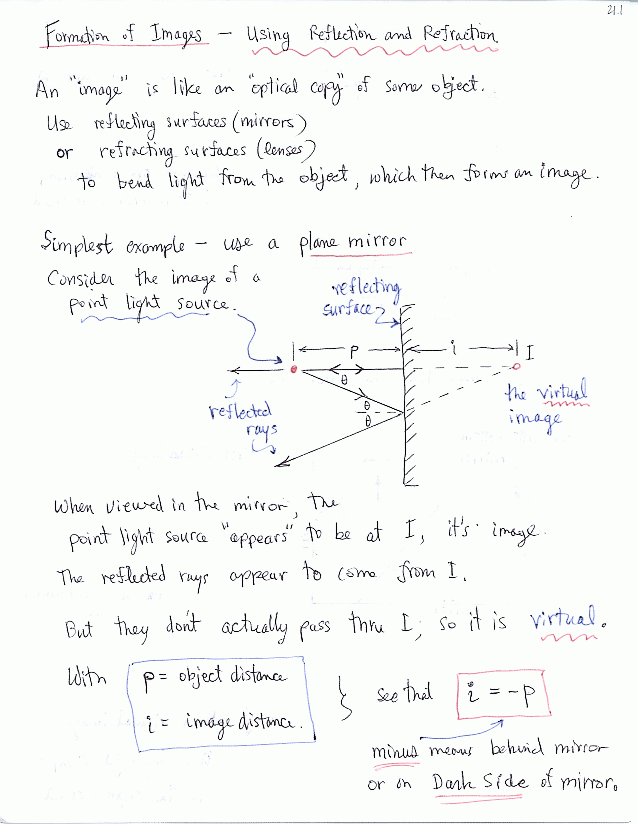 21.1
Formation of Images - Using Reflection and Refraction.
An "image" is like an "optical copy" of some object.
Use reflecting surfaces (mirrors)
or refracting surfaces (lenses)
to bend light from the object, which then forms an image.
Simplest example - use a plane mirror
Consider the image of a
point light source.
reflecting
surface
p
i
I
θ
θ
θ
the virtual
image
reflected
rays
When viewed in the mirror, the
point light source "appears" to be at I, it's image.
The reflected rays appear to come from I.
But they don't actually pass thru I, so it is virtual.
With
p = object distance
i = image distance.
see that
i = -p
minus means behind mirror
or on Dark Side of mirror.